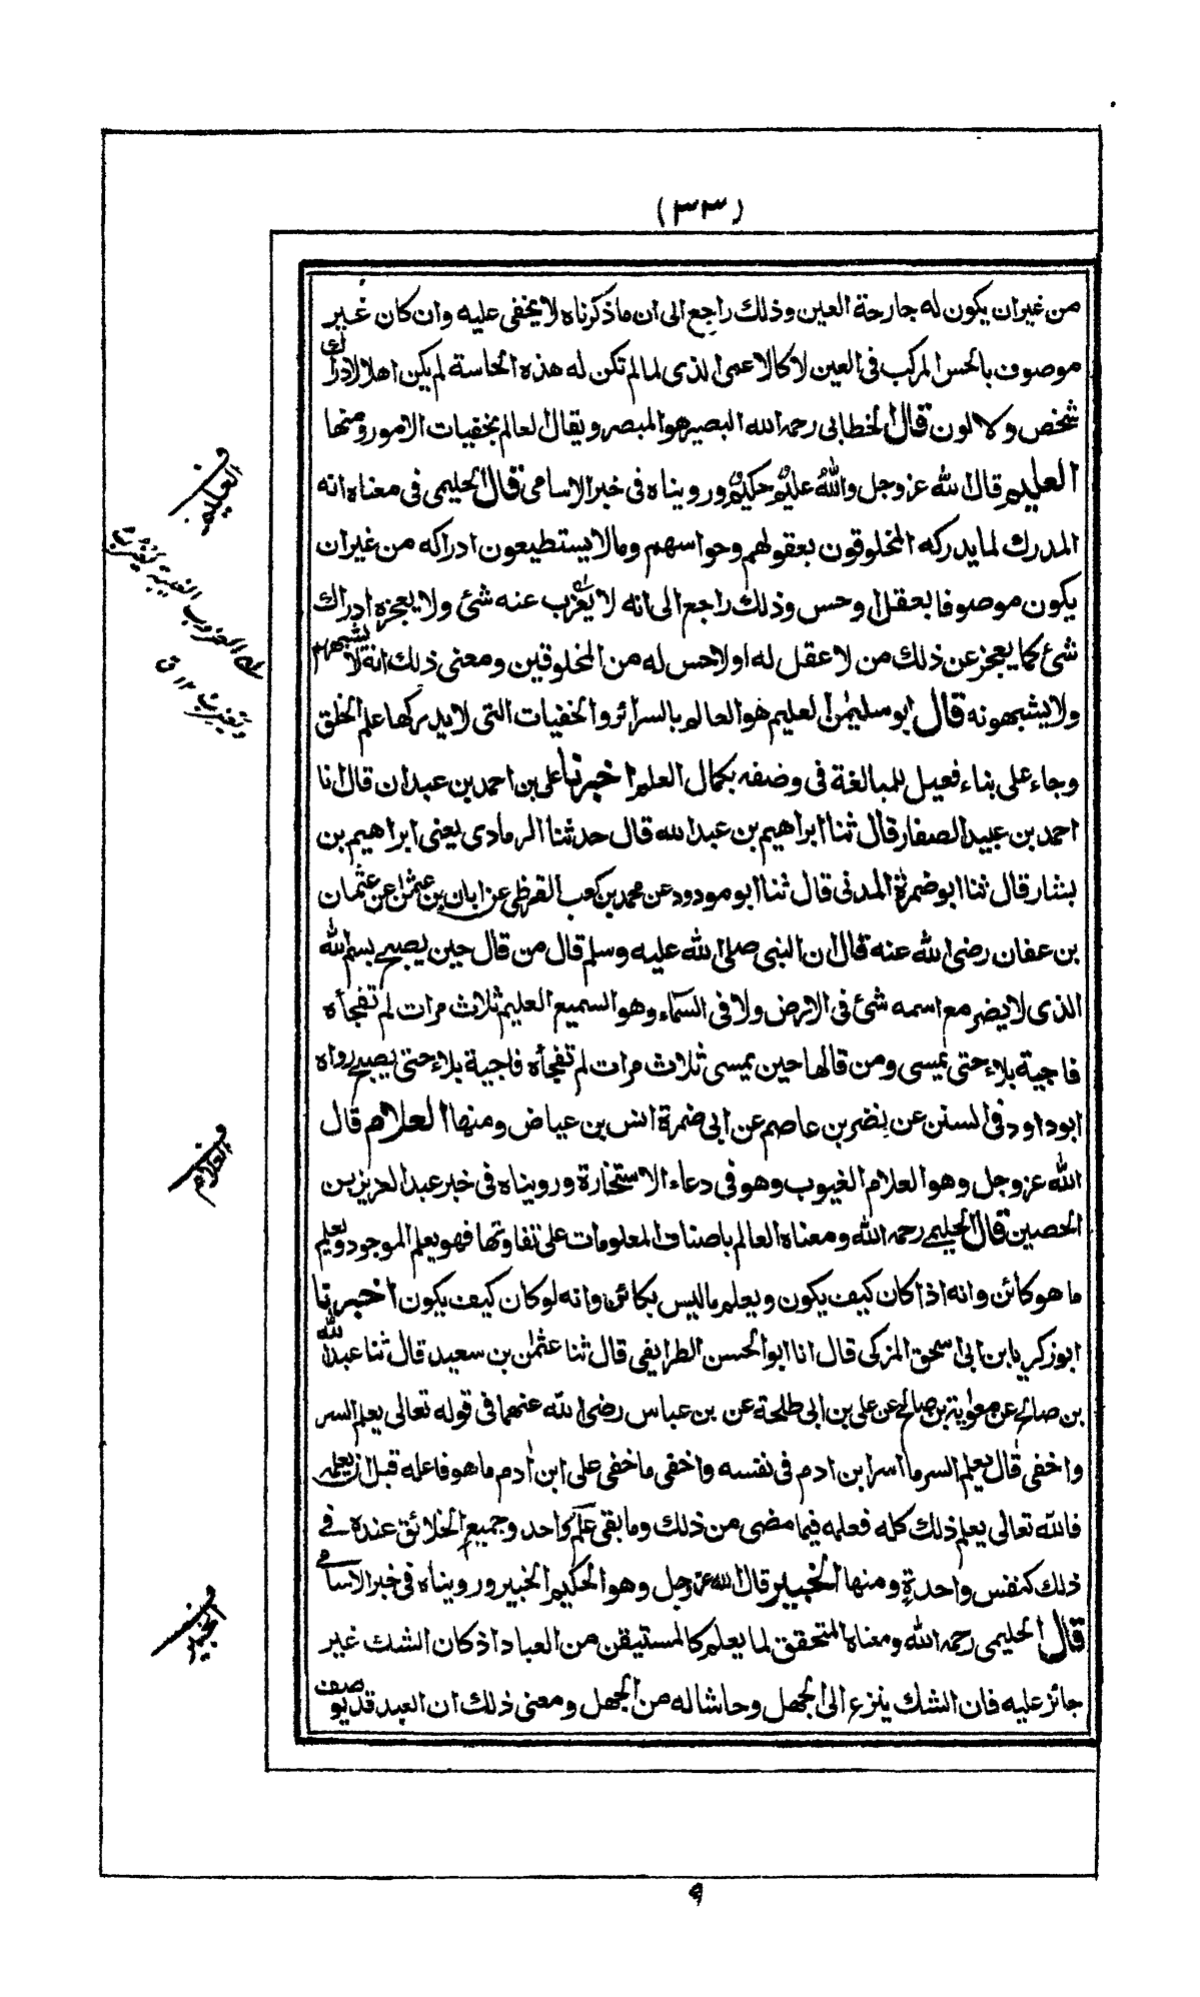 (٣٣)
من غيران يكون له جارحة العين وذلك راجع الى ان ماذكرناه لا يخفى عليه وان كان غير
موصوف بالحس المركب فى العين لا كالاعمى الذى لما لم تكن له هذه الحاسة لم يكن اهلا لادراك
شخص ولا لون قال الخطابى رحمه الله البصير هو المبصر ويقال العالم بخفيات الامور ومنها
العليم قال الله عز وجل والله عليم حكيم ورويناه فى خبر الاسامى قال الحليمى فى معناه انه
المدرك لما يدركه المخلوقون بعقولهم وحواسهم ومالا يستطيعون ادراكه من غيران
يكون موصوفا بعقل او حس وذلك راجع الى انه لا يعزب عنه شئ ولا يعجزه ادراك
شئ كما يعجز عن ذلك من لا عقل له او لا حس له من المخلوقين ومعنى ذلك انه لا يشبههم
ولا يشبهونه قال ابو سليمٰن العليم هو العالم بالسرائر والخفيات التى لا يدركها علم الخلق
وجاء على بناء فعيل للمبالغة فى وصفه بكمال العلم اخبرنا على بن احمد بن عبدان قال انا
احمد بن عبيد الصفار قال ثنا ابراهيم بن عبد الله قال حدثنا الرمادى يعنى ابراهيم بن
بشار قال ثنا ابو ضمرة المدنى قال ثنا ابو مودود عن محمد بن كعب القرظى عن ابان بن عثمٰن عن عثمان
بن عفان رضى الله عنه قال ان النبى صلى الله عليه وسلم قال من قال حين يصبح بسم الله
الذى لا يضر مع اسمه شئ فى الارض ولا فى السماء وهو السميع العليم ثلاث مرات لم تفجأه
فاجية بلاء حتى يمسى ومن قالها حين يمسى ثلاث مرات لم تفجأه فاجية بلاء حتى يصبح رواه
ابوداود فى السنن عن نضر بن عاصم عن ابى ضمرة انس بن عياض ومنها العلام قال
الله عز وجل وهو العلام الغيوب وهو فى دعاء الاستخارة ورويناه فى خبر عبد العزيز بن
الحصين قال الحليمى رحمه الله ومعناه العالم باصناف المعلومات على تفاوتها فهو يعلم الموجود ويعلم
ما هو كائن وانه اذا كان كيف يكون ويعلم ما ليس بكائن وانه لو كان كيف يكون اخبرنا
ابو زكريا بن ابى اسحق المزكى قال انا ابو الحسن الطرايفى قال ثنا عثمٰن بن سعيد قال ثنا عبد الله
بن صالح عن معوية بن صالح عن على بن ابى طلحة عن بن عباس رضى الله عنهما فى قوله تعالى يعلم السر
واخفى قال يعلم السر ما اسر ابن ادم فى نفسه واخفى ما خفى على ابن اٰدم ما هو فاعله قبل ان يعلمه
فالله تعالى يعلم ذلك كله فعلمه فيما مضى من ذلك وما بقى علم واحد وجميع الخلائق عنده فى
ذلك كنفس واحدة ومنها الخبير قال الله عز وجل وهو الحكيم الخبير وروينا‌ه فى خبر الاسامى
قال الحليمى رحمه الله ومعناه المتحقق لما يعلم كالمستيقن من العباد اذ كان الشك غير
جائز عليه فان الشك ينزع الى الجهل وحاشا له من الجهل ومعنى ذلك ان العبد قد يوصف
العليم
العزوب الغيبة
العلام
الخبير
٩